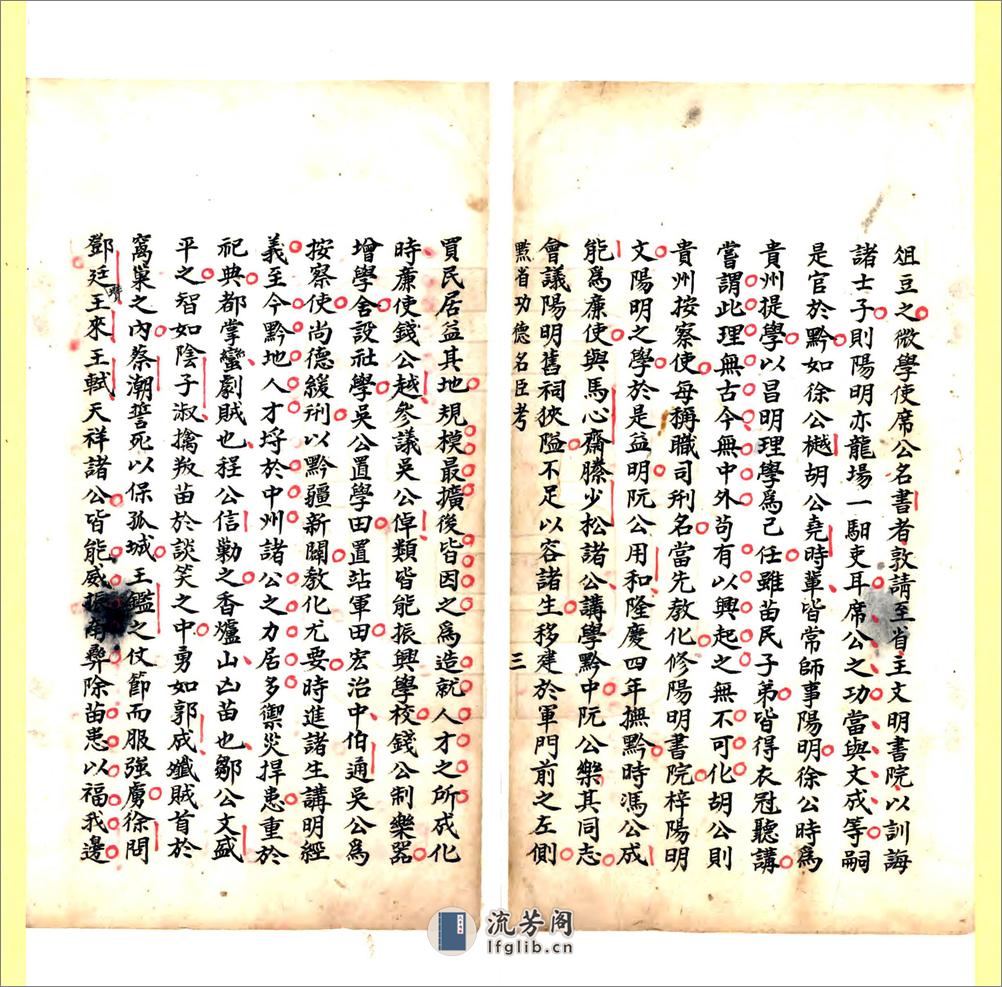 俎豆之微學使席公名書者敦請至省主文明書院以訓誨
諸士子則陽明亦龍場一馹吏耳席公之功當與文成等嗣
是官於黔如徐公樾胡公堯時輩皆常師事陽明徐公時為
貴州提學以昌明理學為己任雖苗民子弟皆得衣冠聽講
嘗謂此理無古今無中外苟有以興起之無不可化胡公則
貴州按察使每稱職司刑名當先教化修陽明書院梓陽明
文陽明之學於是益明阮公用和隆慶四年撫黔時馮公成
能為廉使與馬心齋滕少松諸公講學黔中阮公樂其同志
會議陽明舊祠狹隘不足以容諸生移建於軍門前之左側
黔省功德名臣考
三
買民居益其地規模最擴後皆因之為造就人才之所成化
時廉使錢公越參議吳公倬類皆能振興學校錢公制樂器
增學舍設社學吳公置學田置站軍田宏治中伯通吳公為
按察使尚德緩刑以黔疆新闢教化尤要時進諸生講明經
義至今黔地人才埒於中州諸公之力居多禦災捍患重於
祀典都掌蠻劇賊也程公信勦之香爐山凶苗也鄒公文盛
平之智如陰子淑擒叛苗於談笑之中勇如郭成殲賊首於
窩巢之內蔡潮誓死以保孤城王鑑之仗節而服強虜徐問
鄧廷瓚王來王軾天祥諸公皆能威振南彝除苗患以福我邊
流芳阁
lfglib.cn